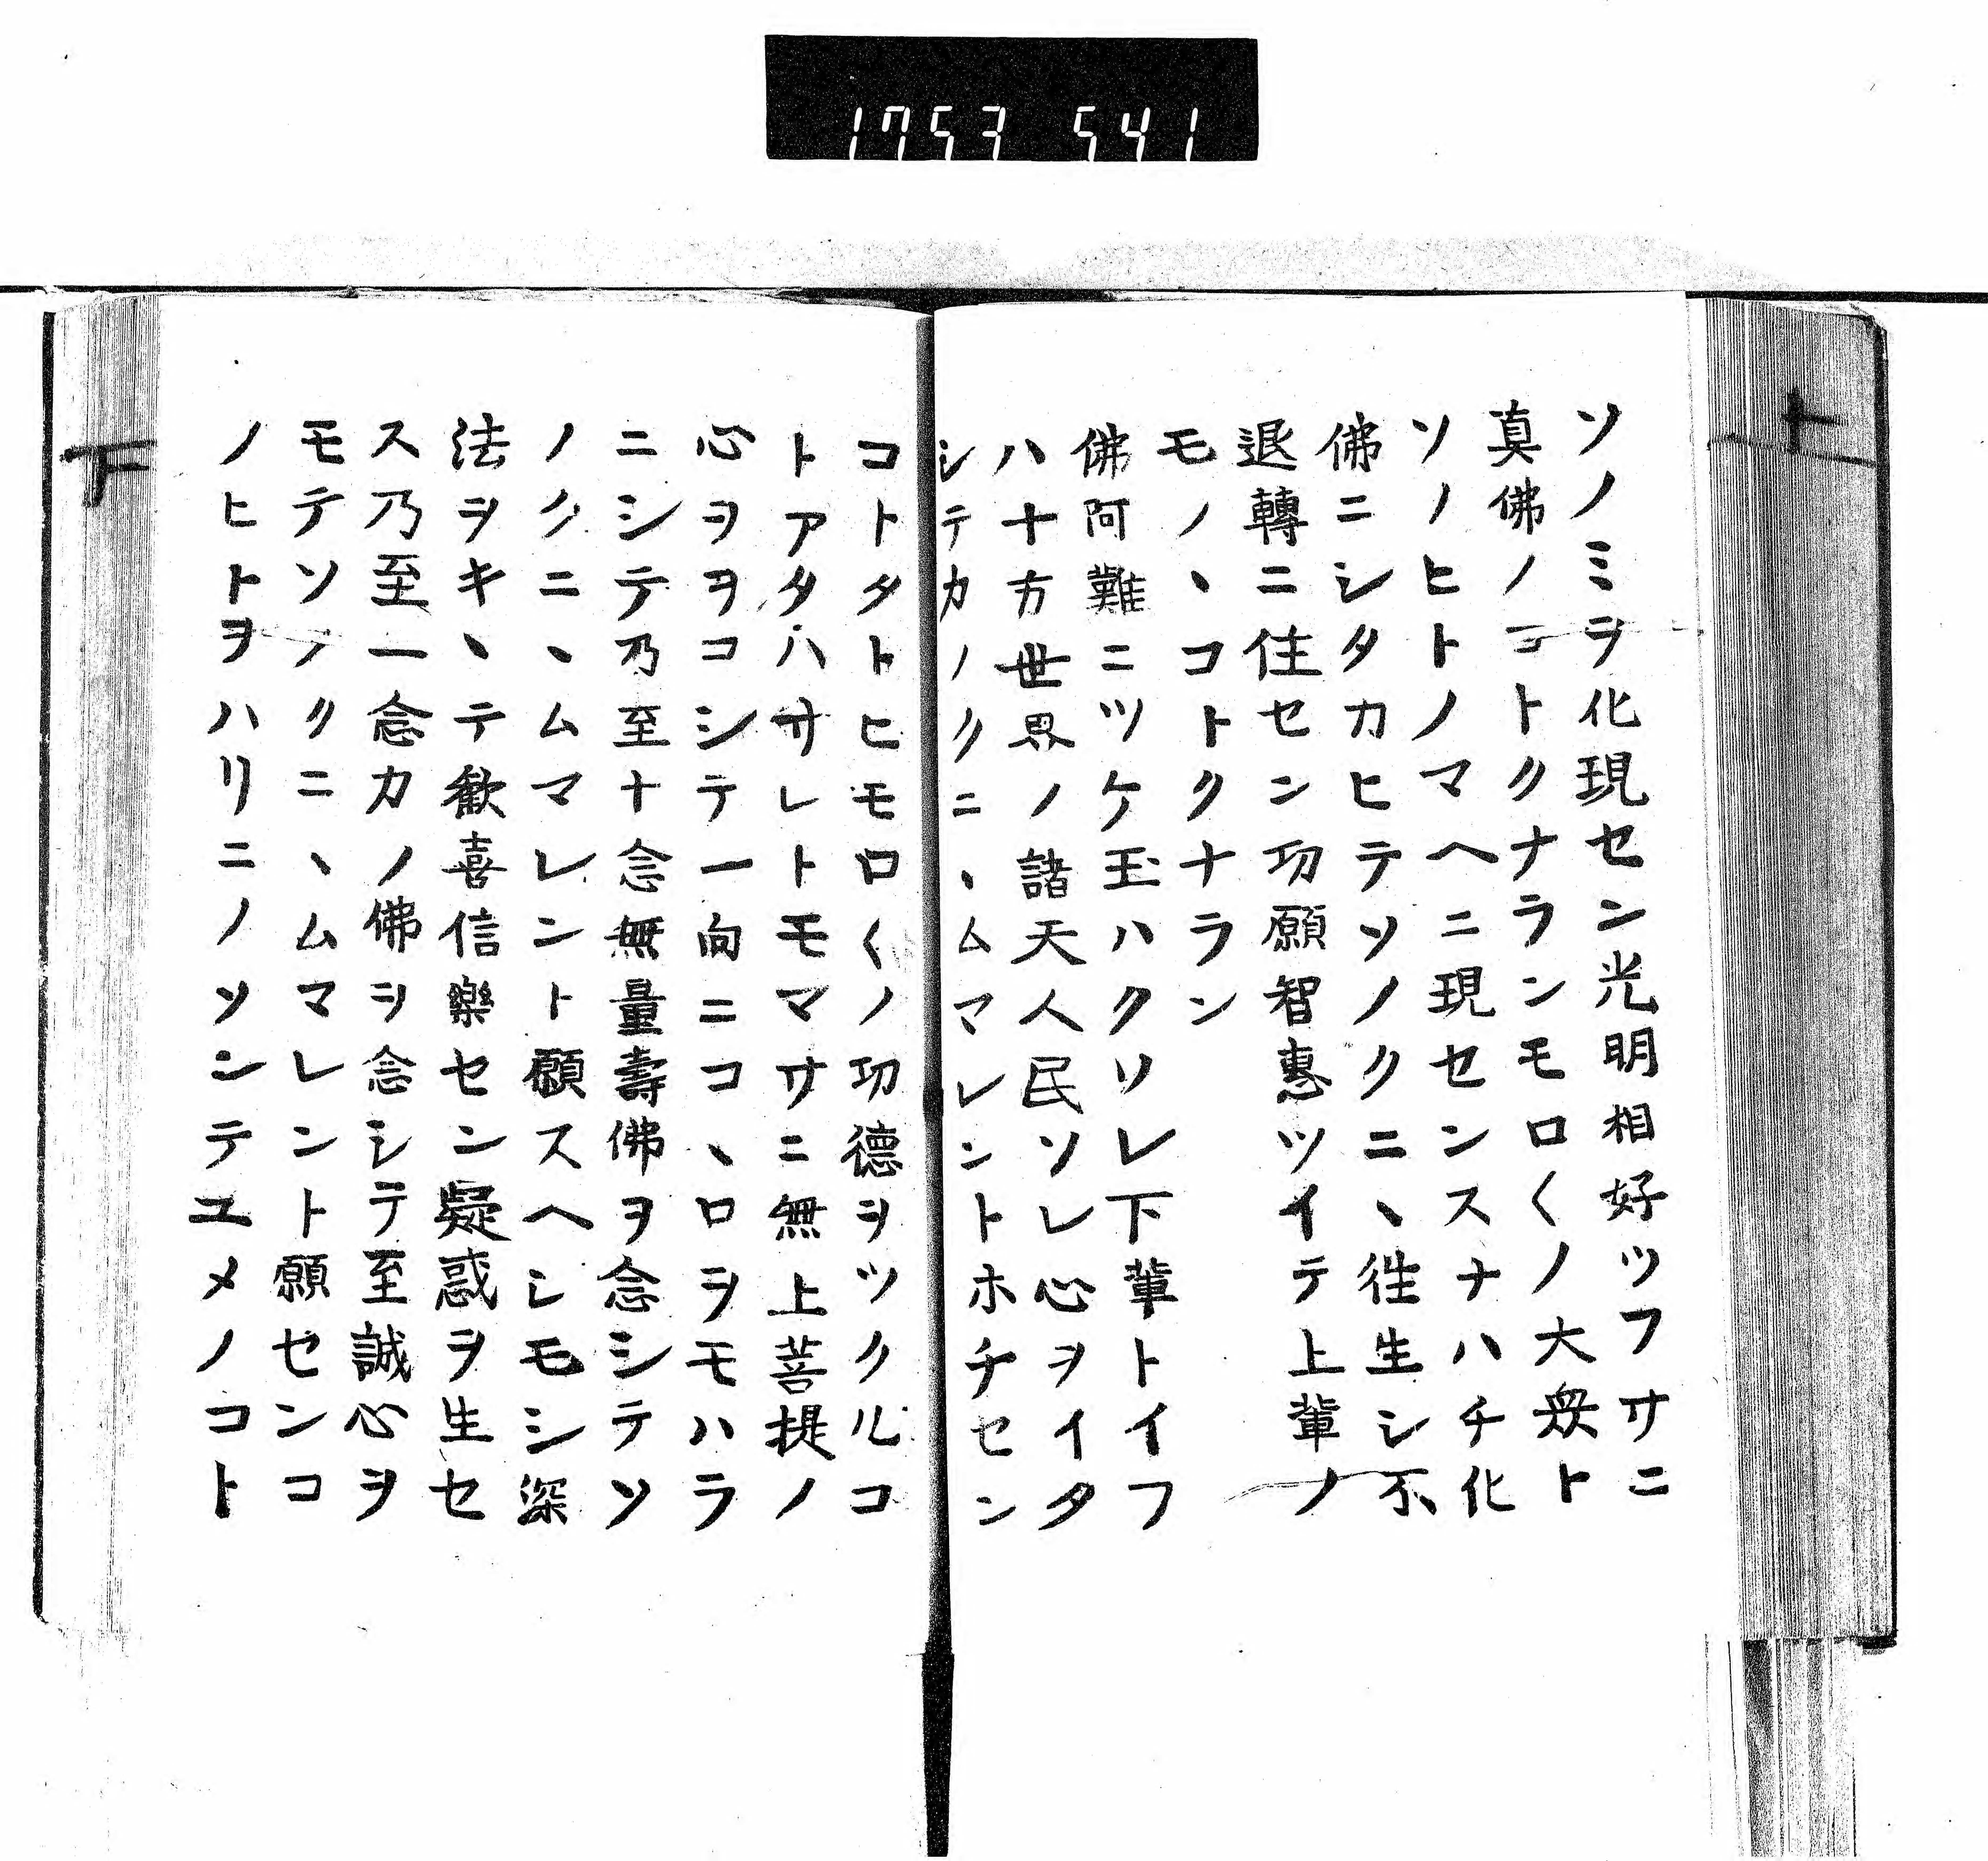 1753 541
ソノミヲ化現セン光明相好ツフサニ
真佛ノコトクナランモロ〱ノ大衆ト
ソノヒトノマヘニ現センスナハチ化
佛ニシタカヒテソノクニヽ徃生シ不
退轉ニ住セン功願智惠ツイテ上輩ノ
モノヽコトクナラン
佛阿難ニツケ玉ハクソレ下輩トイフ
ハ十方世界ノ諸天人民ソレ心ヲイタ
シテカノクニヽムマレントホチセン
コトタトヒモロ〱ノ功德ヲツクルコ
トアタハサレトモマサニ無上菩提ノ
心ヲヲコシテ一向ニコヽロヲモハラ
ニシテ乃至十念無量壽佛ヲ念シテソ
ノクニヽムマレント願スヘシモシ深
法ヲキヽテ歡喜信樂セン疑惑ヲ生セ
ス乃至一念カノ佛ヲ念シテ至誠心ヲ
モテソノクニヽムマレント願センコ
ノヒトヲハリニノソンテユメノコト
下